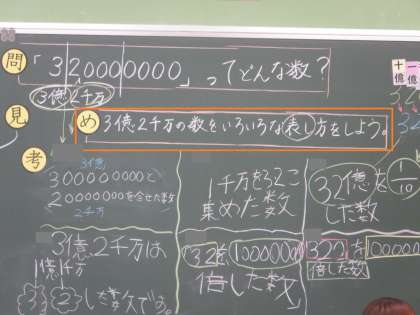 問
「320000000」ってどんな数？
3億 2千万
見
め 3億2千万の数をいろいろな表し方をしよう。
十億 一億
32
考
3億
300000000と
20000000を合せた数
2千万
1千万を32こ
集めた数
32億を 1/10
した数
3億2千万は
1億 1千万
3 2 した数です。
32を10000000
倍した数
320を1000000
倍した数